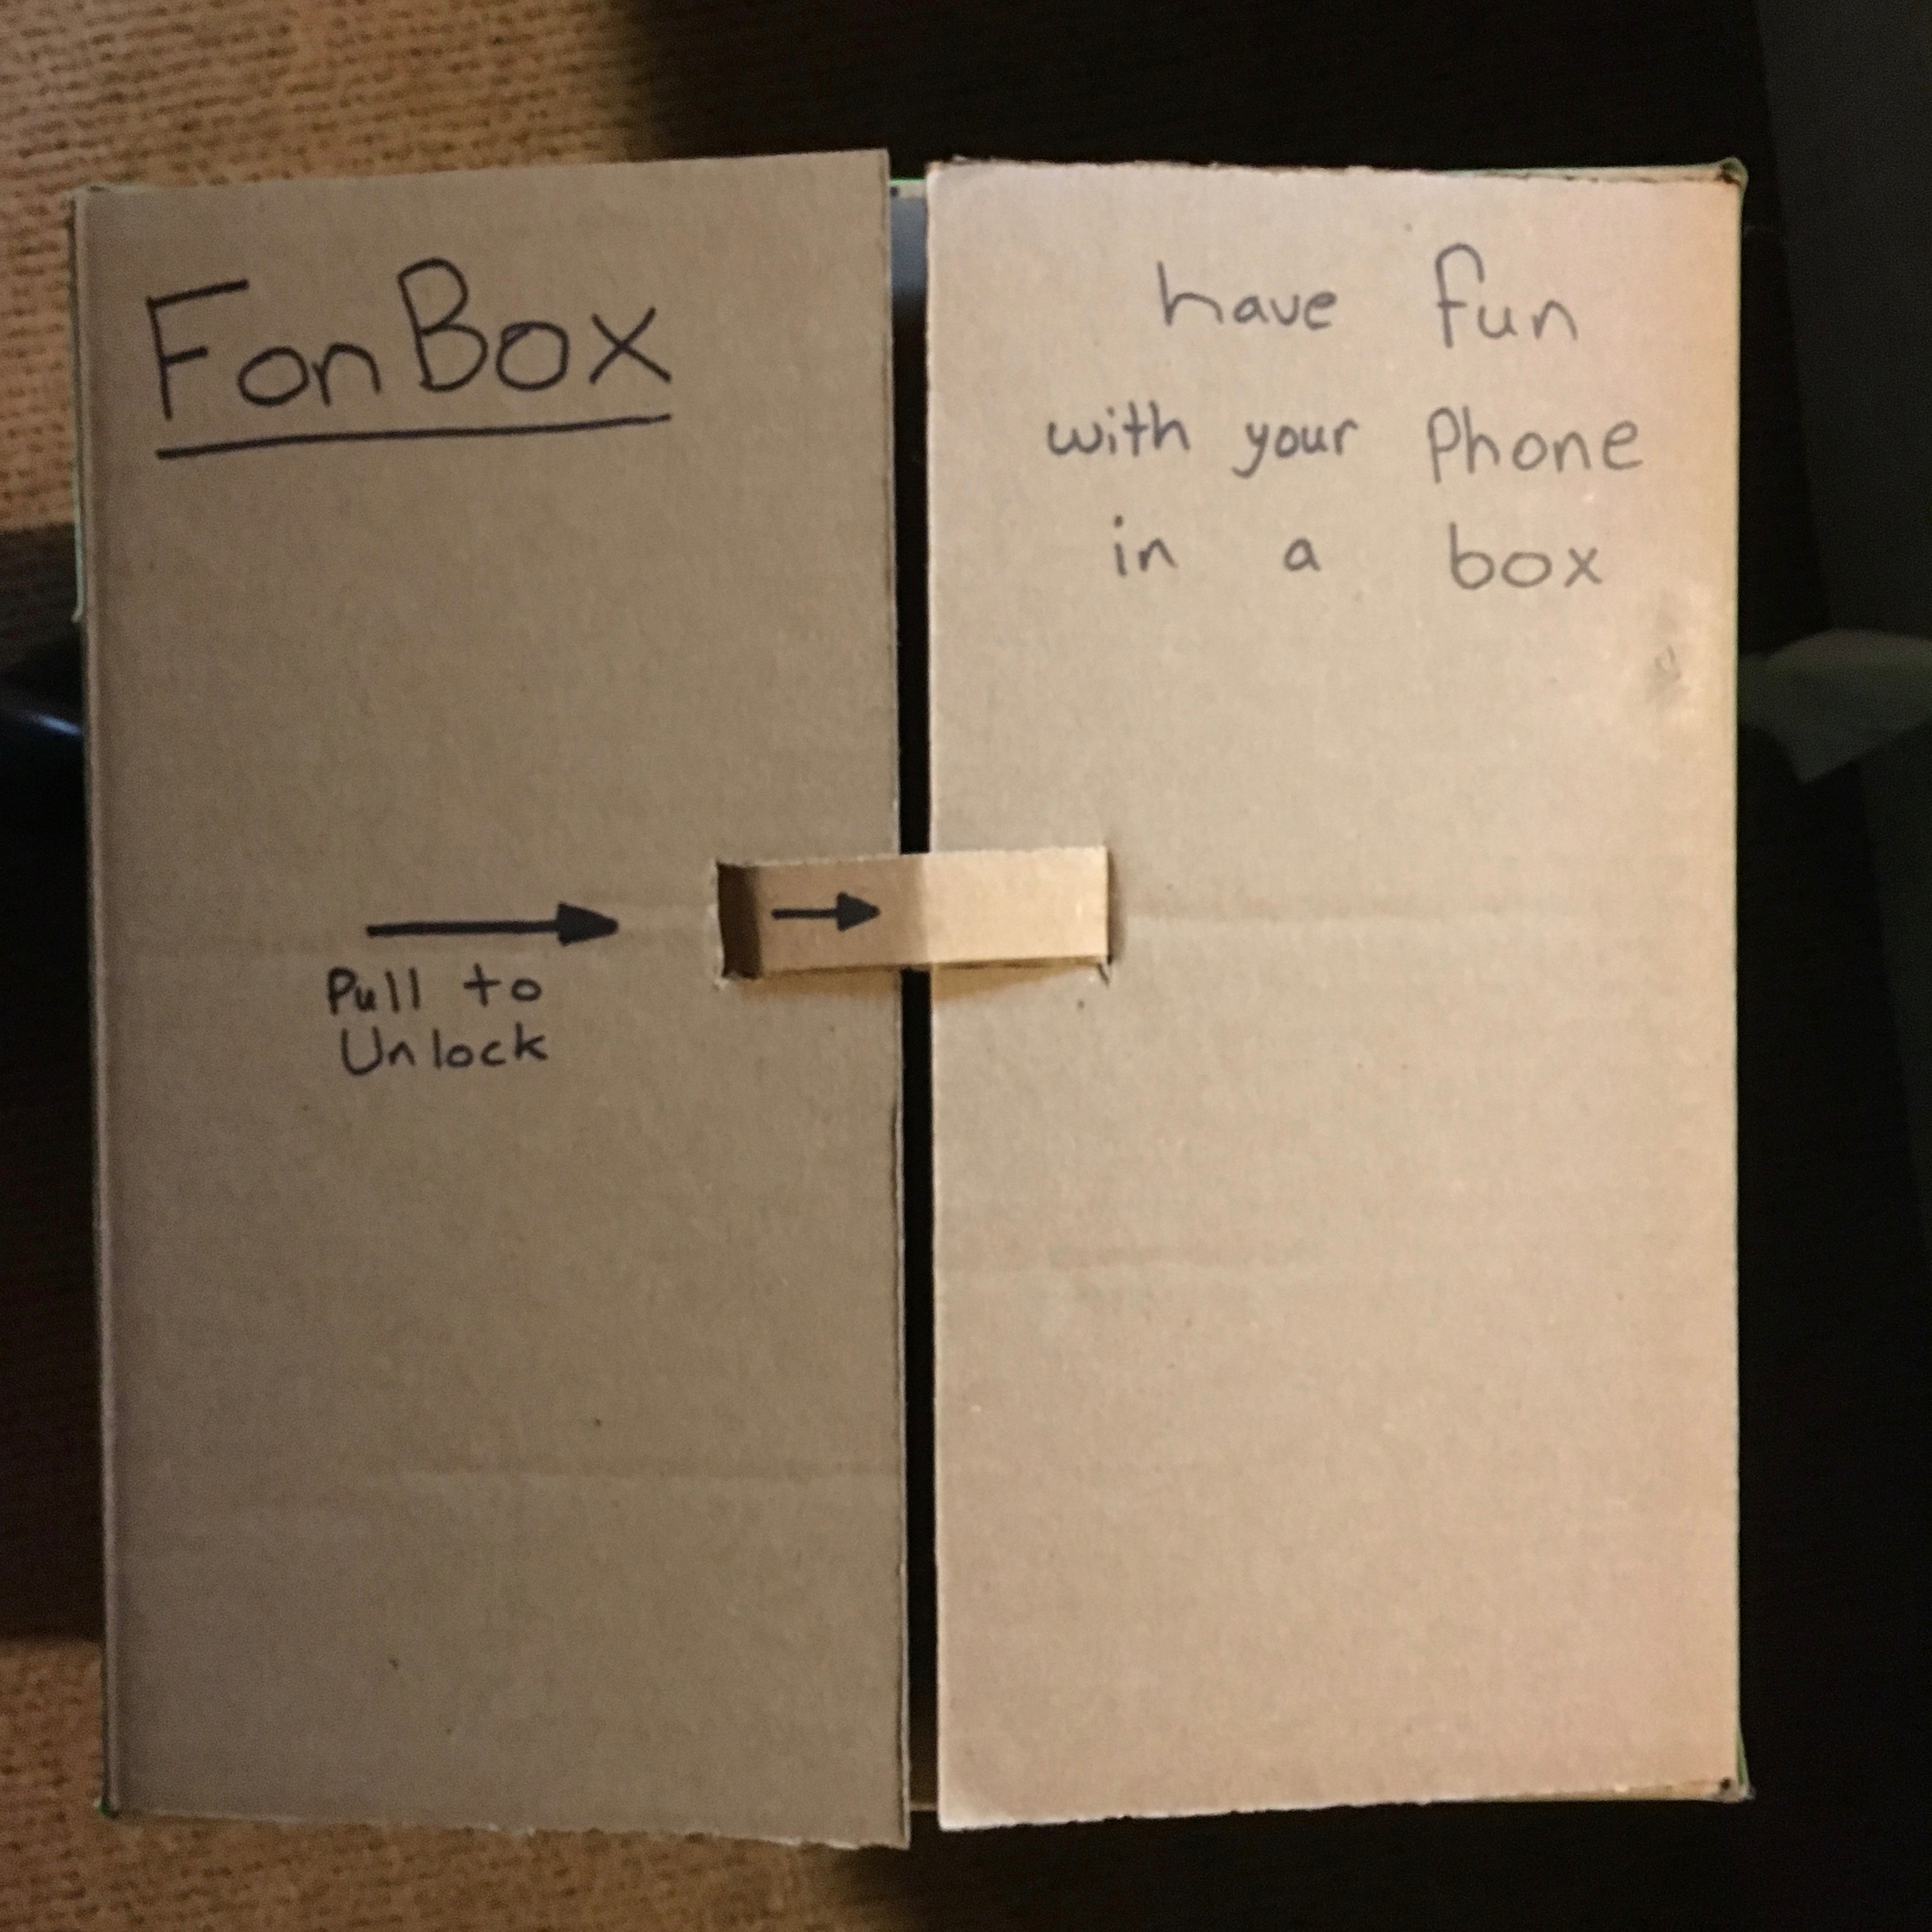 FonBox
Pull to
Unlock
have fun
with your Phone
in a box